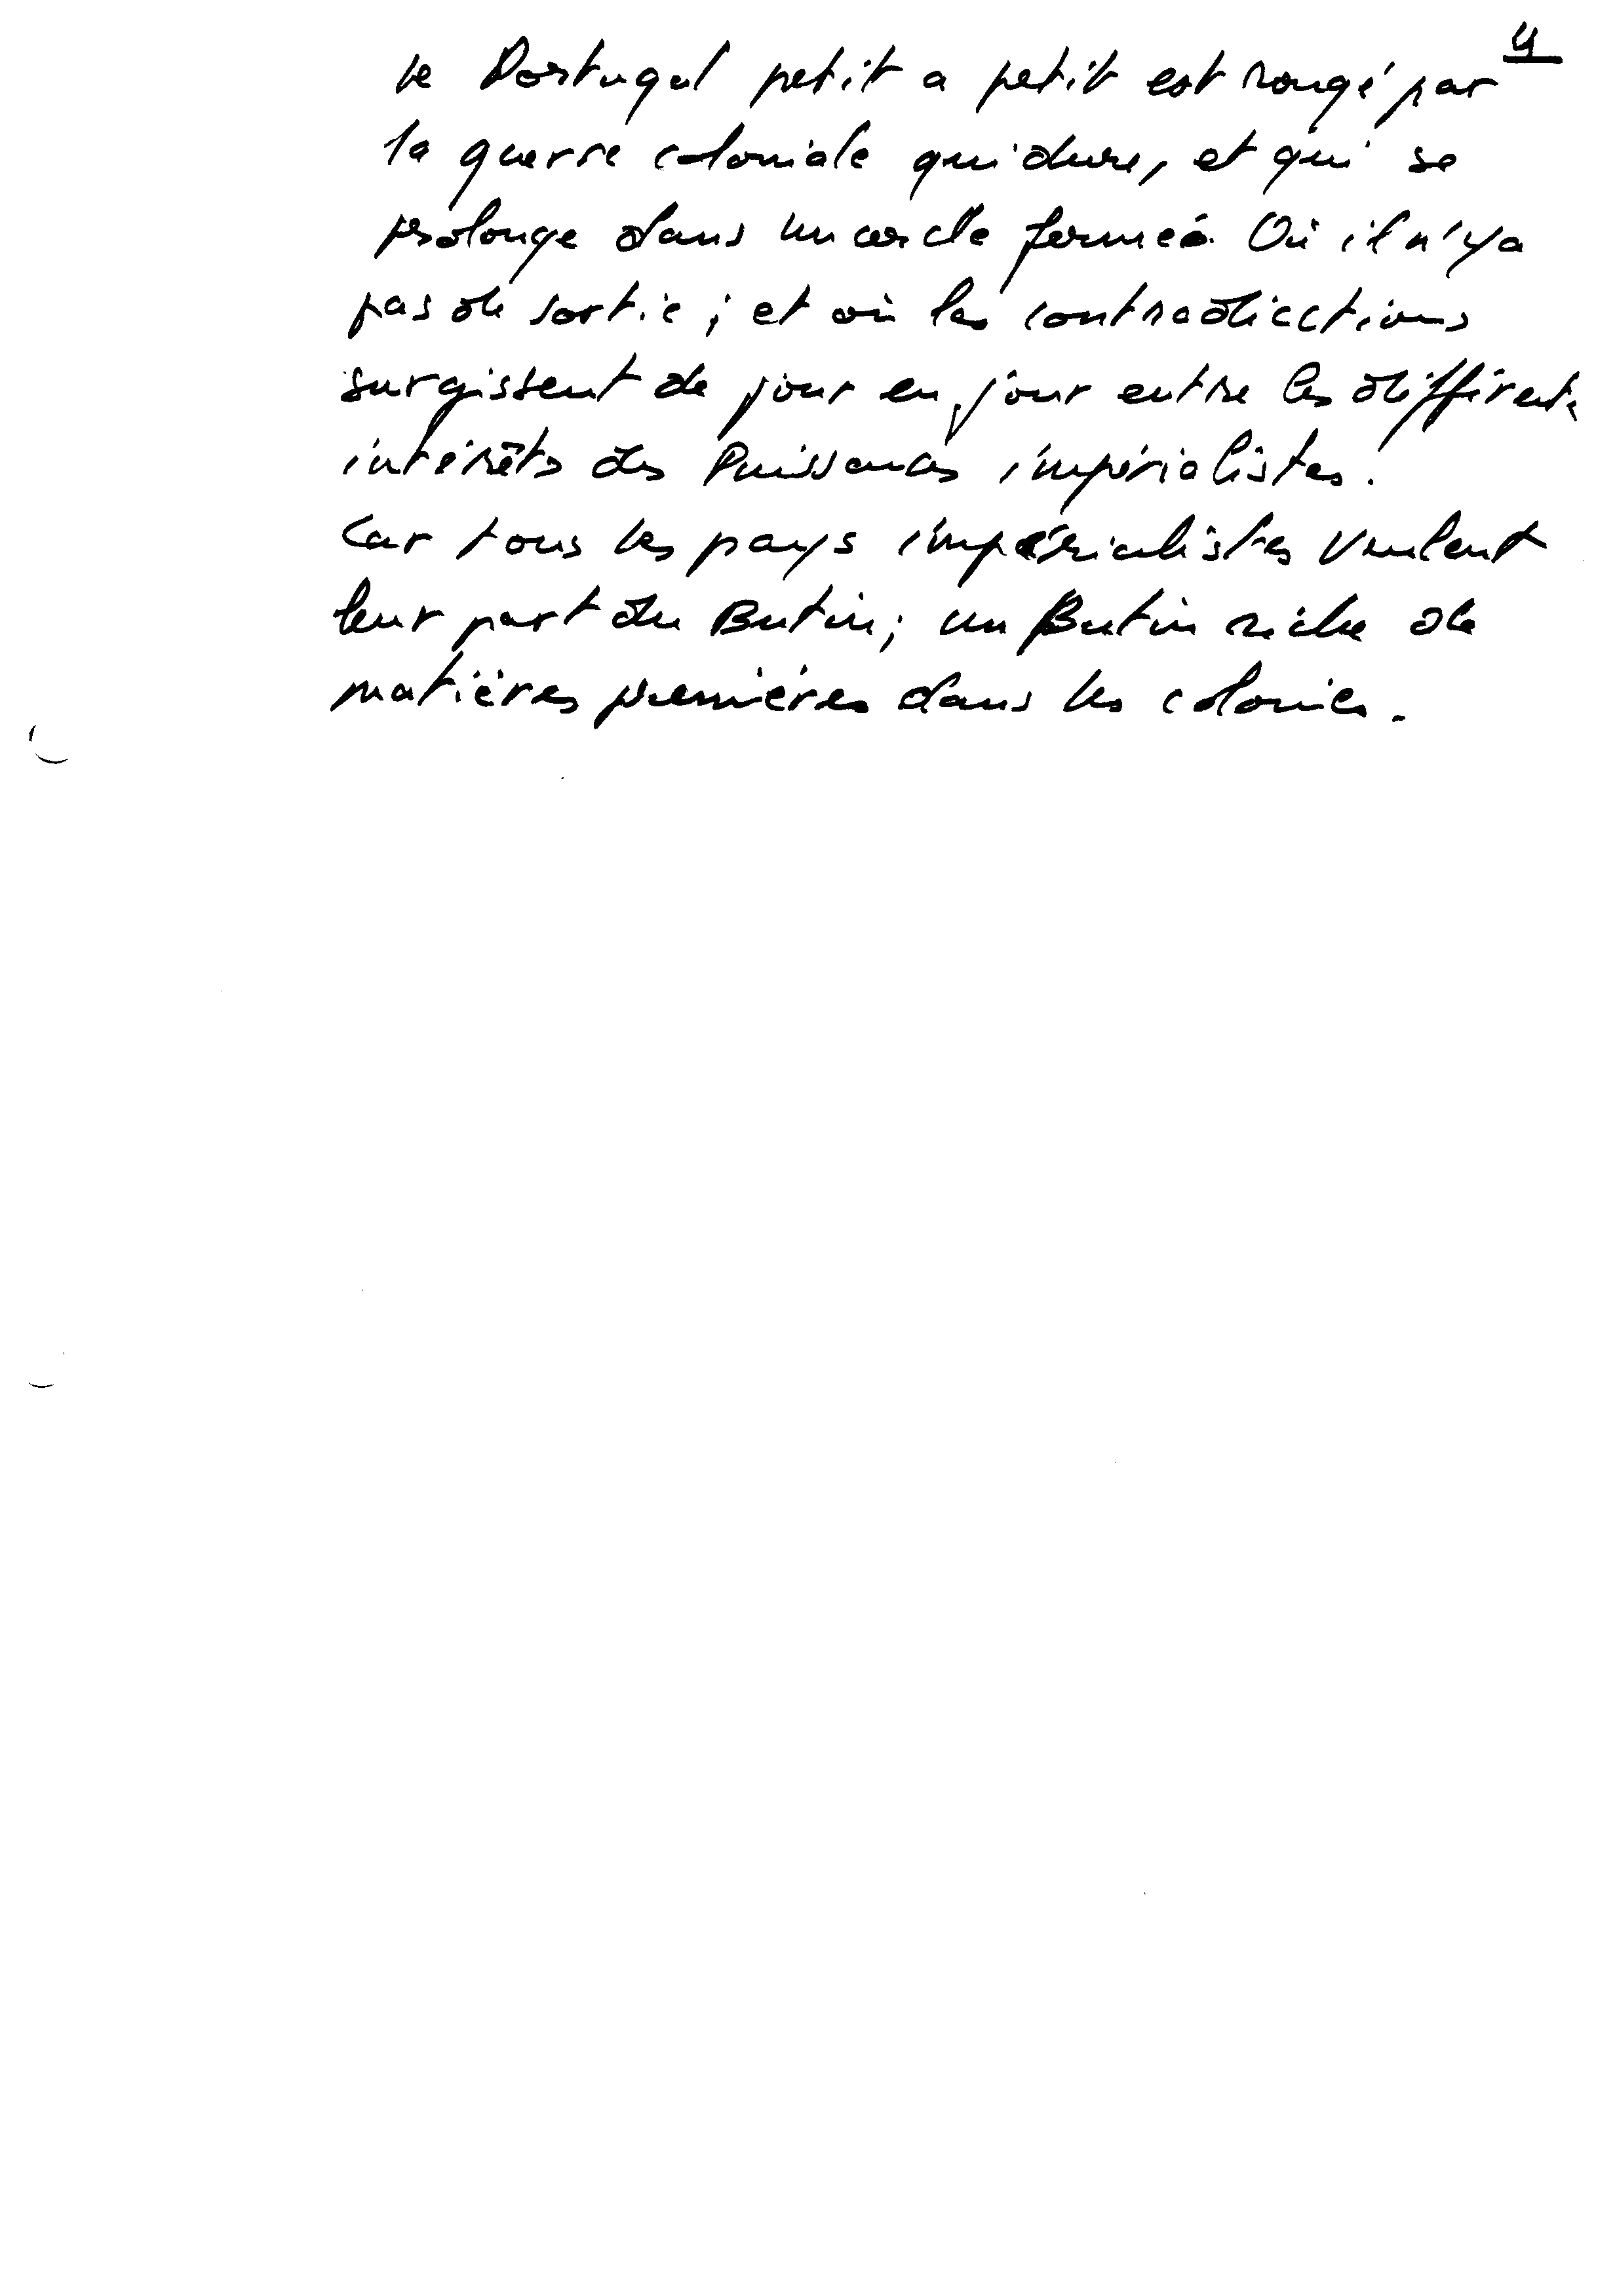 4
le Portugal petit a petit est rongé par
la guerre coloniale qui dure, et qui se
prolonge dans un cercle fermé. Où il n'y a
pas de sortie ; et où les contradicctions
surgissent de jour en jour entre les différents
intérêts des Puissances impérialistes.
Car tous les pays impérialistes veulent
leur part du Butin ; un Butin riche de
matières premières dans les colonies.